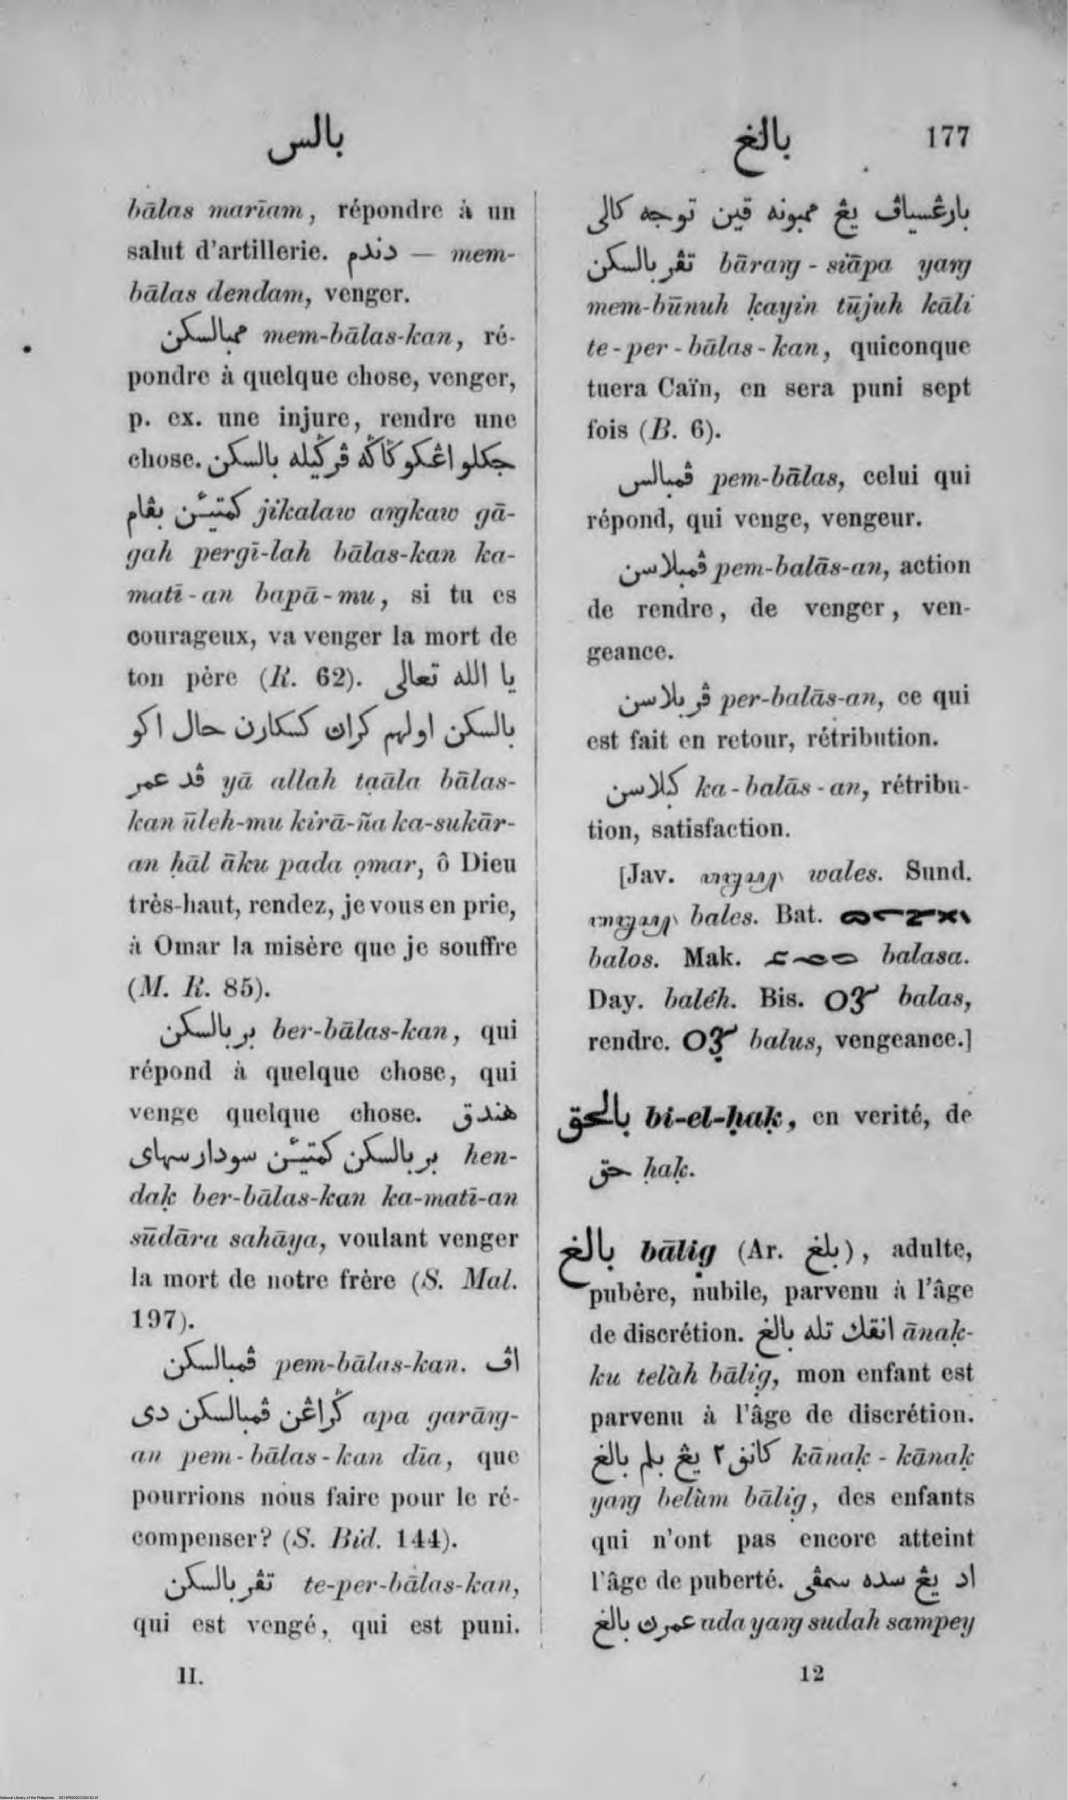 بالس
بالغ 177
bālas marīam, répondre à un
salut d'artillerie. دندم — mem-
bālas dendam, venger.
ممبالسكن mem-bālas-kan, ré-
pondre à quelque chose, venger,
p. ex. une injure, rendre une
chose. جكلو اڠكو ڬاڬه ڤرڬيله بالسكن
كمتيئن بڤام jikalaw aŋkaw gā-
gah pergī-lah bālas-kan ka-
matī-an bapā-mu, si tu es
courageux, va venger la mort de
ton père (R. 62). يا الله تعالى
بالسكن اولهم كران كسكارن حال اكو
ڤد عمر yā allah taāla bālas-
kan ūleh-mu kirā-ña ka-sukār-
an ḥāl āku pada ọmar, ô Dieu
très-haut, rendez, je vous en prie,
à Omar la misère que je souffre
(M. R. 85).
بربالسكن ber-bālas-kan, qui
répond à quelque chose, qui
venge quelque chose. هندق
بربالسكن كمتيئن سودار سهاي hen-
daḳ ber-bālas-kan ka-matī-an
sūdāra sahāya, voulant venger
la mort de notre frère (S. Mal.
197).
ڤمبالسكن pem-bālas-kan. اڤ
ڬراڠن ڤمبالسكن دى apa garāŋ-
an pem-bālas-kan dīa, que
pourrions nous faire pour le ré-
compenser? (S. Bid. 144).
تڤربالسكن te-per-bālas-kan,
qui est vengé, qui est puni.
II.
بارڠسياڤ يڠ ممبونه قين توجه كالى
تڤربالسكن bāraŋ-siāpa yaŋ
mem-būnuh ḳayin tūjuh kāli
te-per-bālas-kan, quiconque
tuera Caïn, en sera puni sept
fois (B. 6).
ڤمبالس pem-bālas, celui qui
répond, qui venge, vengeur.
ڤمبلاسن pem-balās-an, action
de rendre, de venger, ven-
geance.
ڤربلاسن per-balās-an, ce qui
est fait en retour, rétribution.
كبلاسن ka-balās-an, rétribu-
tion, satisfaction.
[Jav. wales. Sund.
bales. Bat.
balos. Mak. balasa.
Day. baléh. Bis. balas,
rendre. balus, vengeance.]
بالحق bi-el-ḥaḳ, en verité, de
حق ḥaḳ.
بالغ bālig̣ (Ar. بلغ), adulte,
pubère, nubile, parvenu à l'âge
de discrétion. انقك تله بالغ ānaḳ-
ku telàh bālig̣, mon enfant est
parvenu à l'âge de discrétion.
كانق٢ يڠ بلم بالغ kānaḳ-kānaḳ
yaŋ belùm bālig̣, des enfants
qui n'ont pas encore atteint
l'âge de puberté. اد يڠ سده سمڤى
عمرڽ بالغ ada yaŋ sudah sampey
12